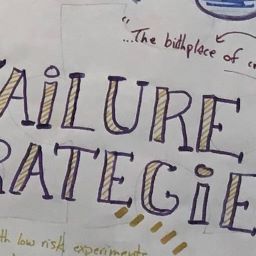 "...The birthplace of
AILURE
RATEGIE
th low risk experiments